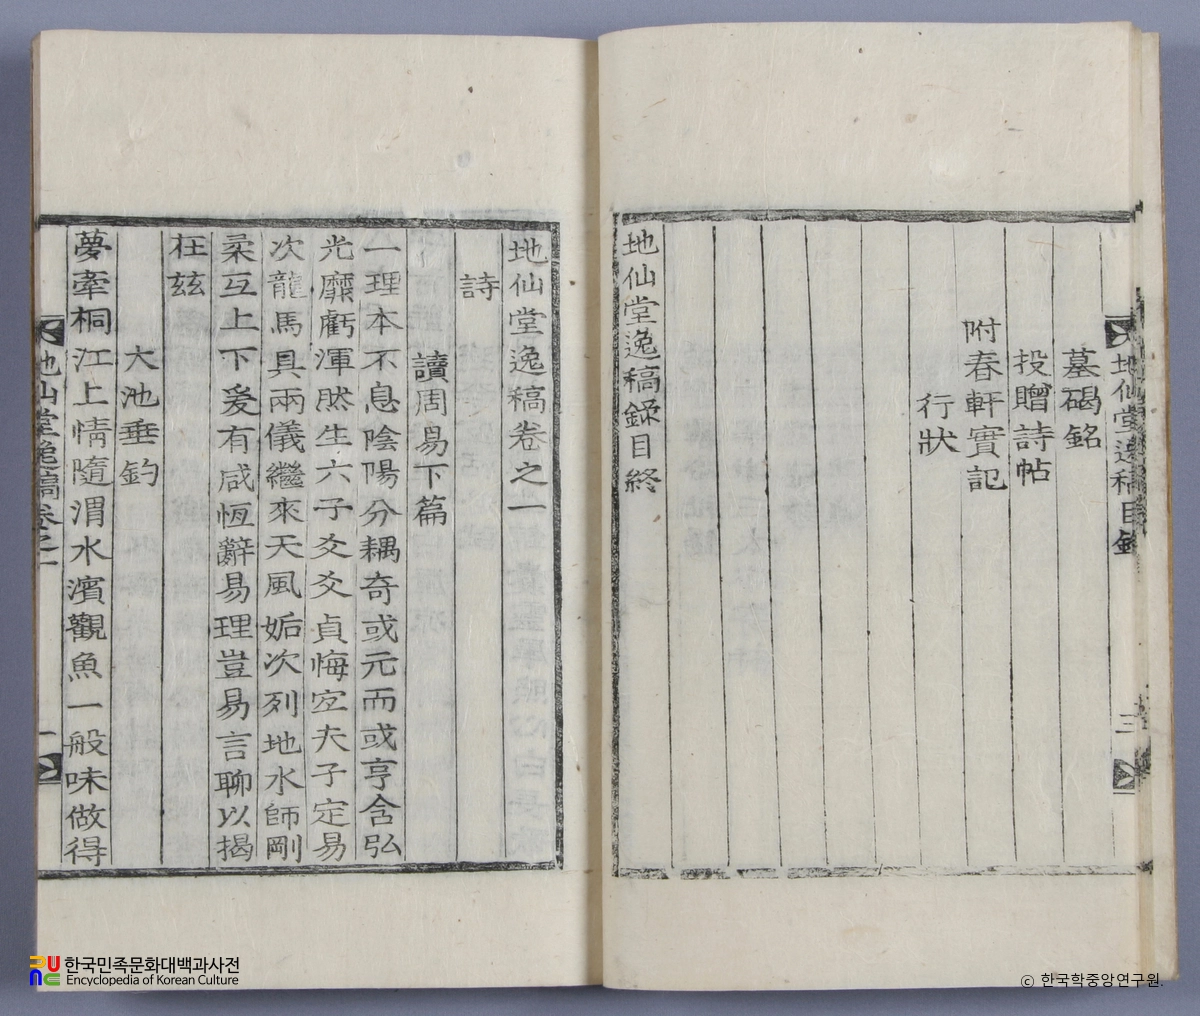 地仙堂逸稿目錄
三
墓碣銘
投贈詩帖
附春軒實記
行狀
地仙堂逸稿錄目終
地仙堂逸稿卷之一
詩
讀周易下篇
一理本不息陰陽分耦奇或元而或亨含弘
光靡虧渾然生六子爻爻貞悔宜夫子定易
次龍馬具兩儀繼來天風姤次列地水師剛
柔互上下爰有咸恆辭易理豈易言聊以揭
在玆
大池垂釣
夢牽桐江上情隨渭水濱觀魚一般味做得
地仙堂逸稿卷之一
一
한국민족문화대백과사전
Encyclopedia of Korean Culture
© 한국학중앙연구원.